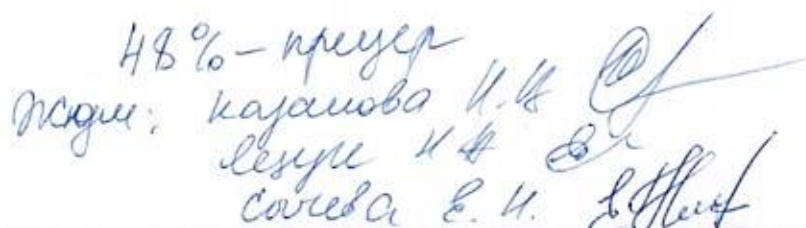 48% – призер
Жюри: Казанова И.И.
Лещук И.И.
Сочева Е.И.